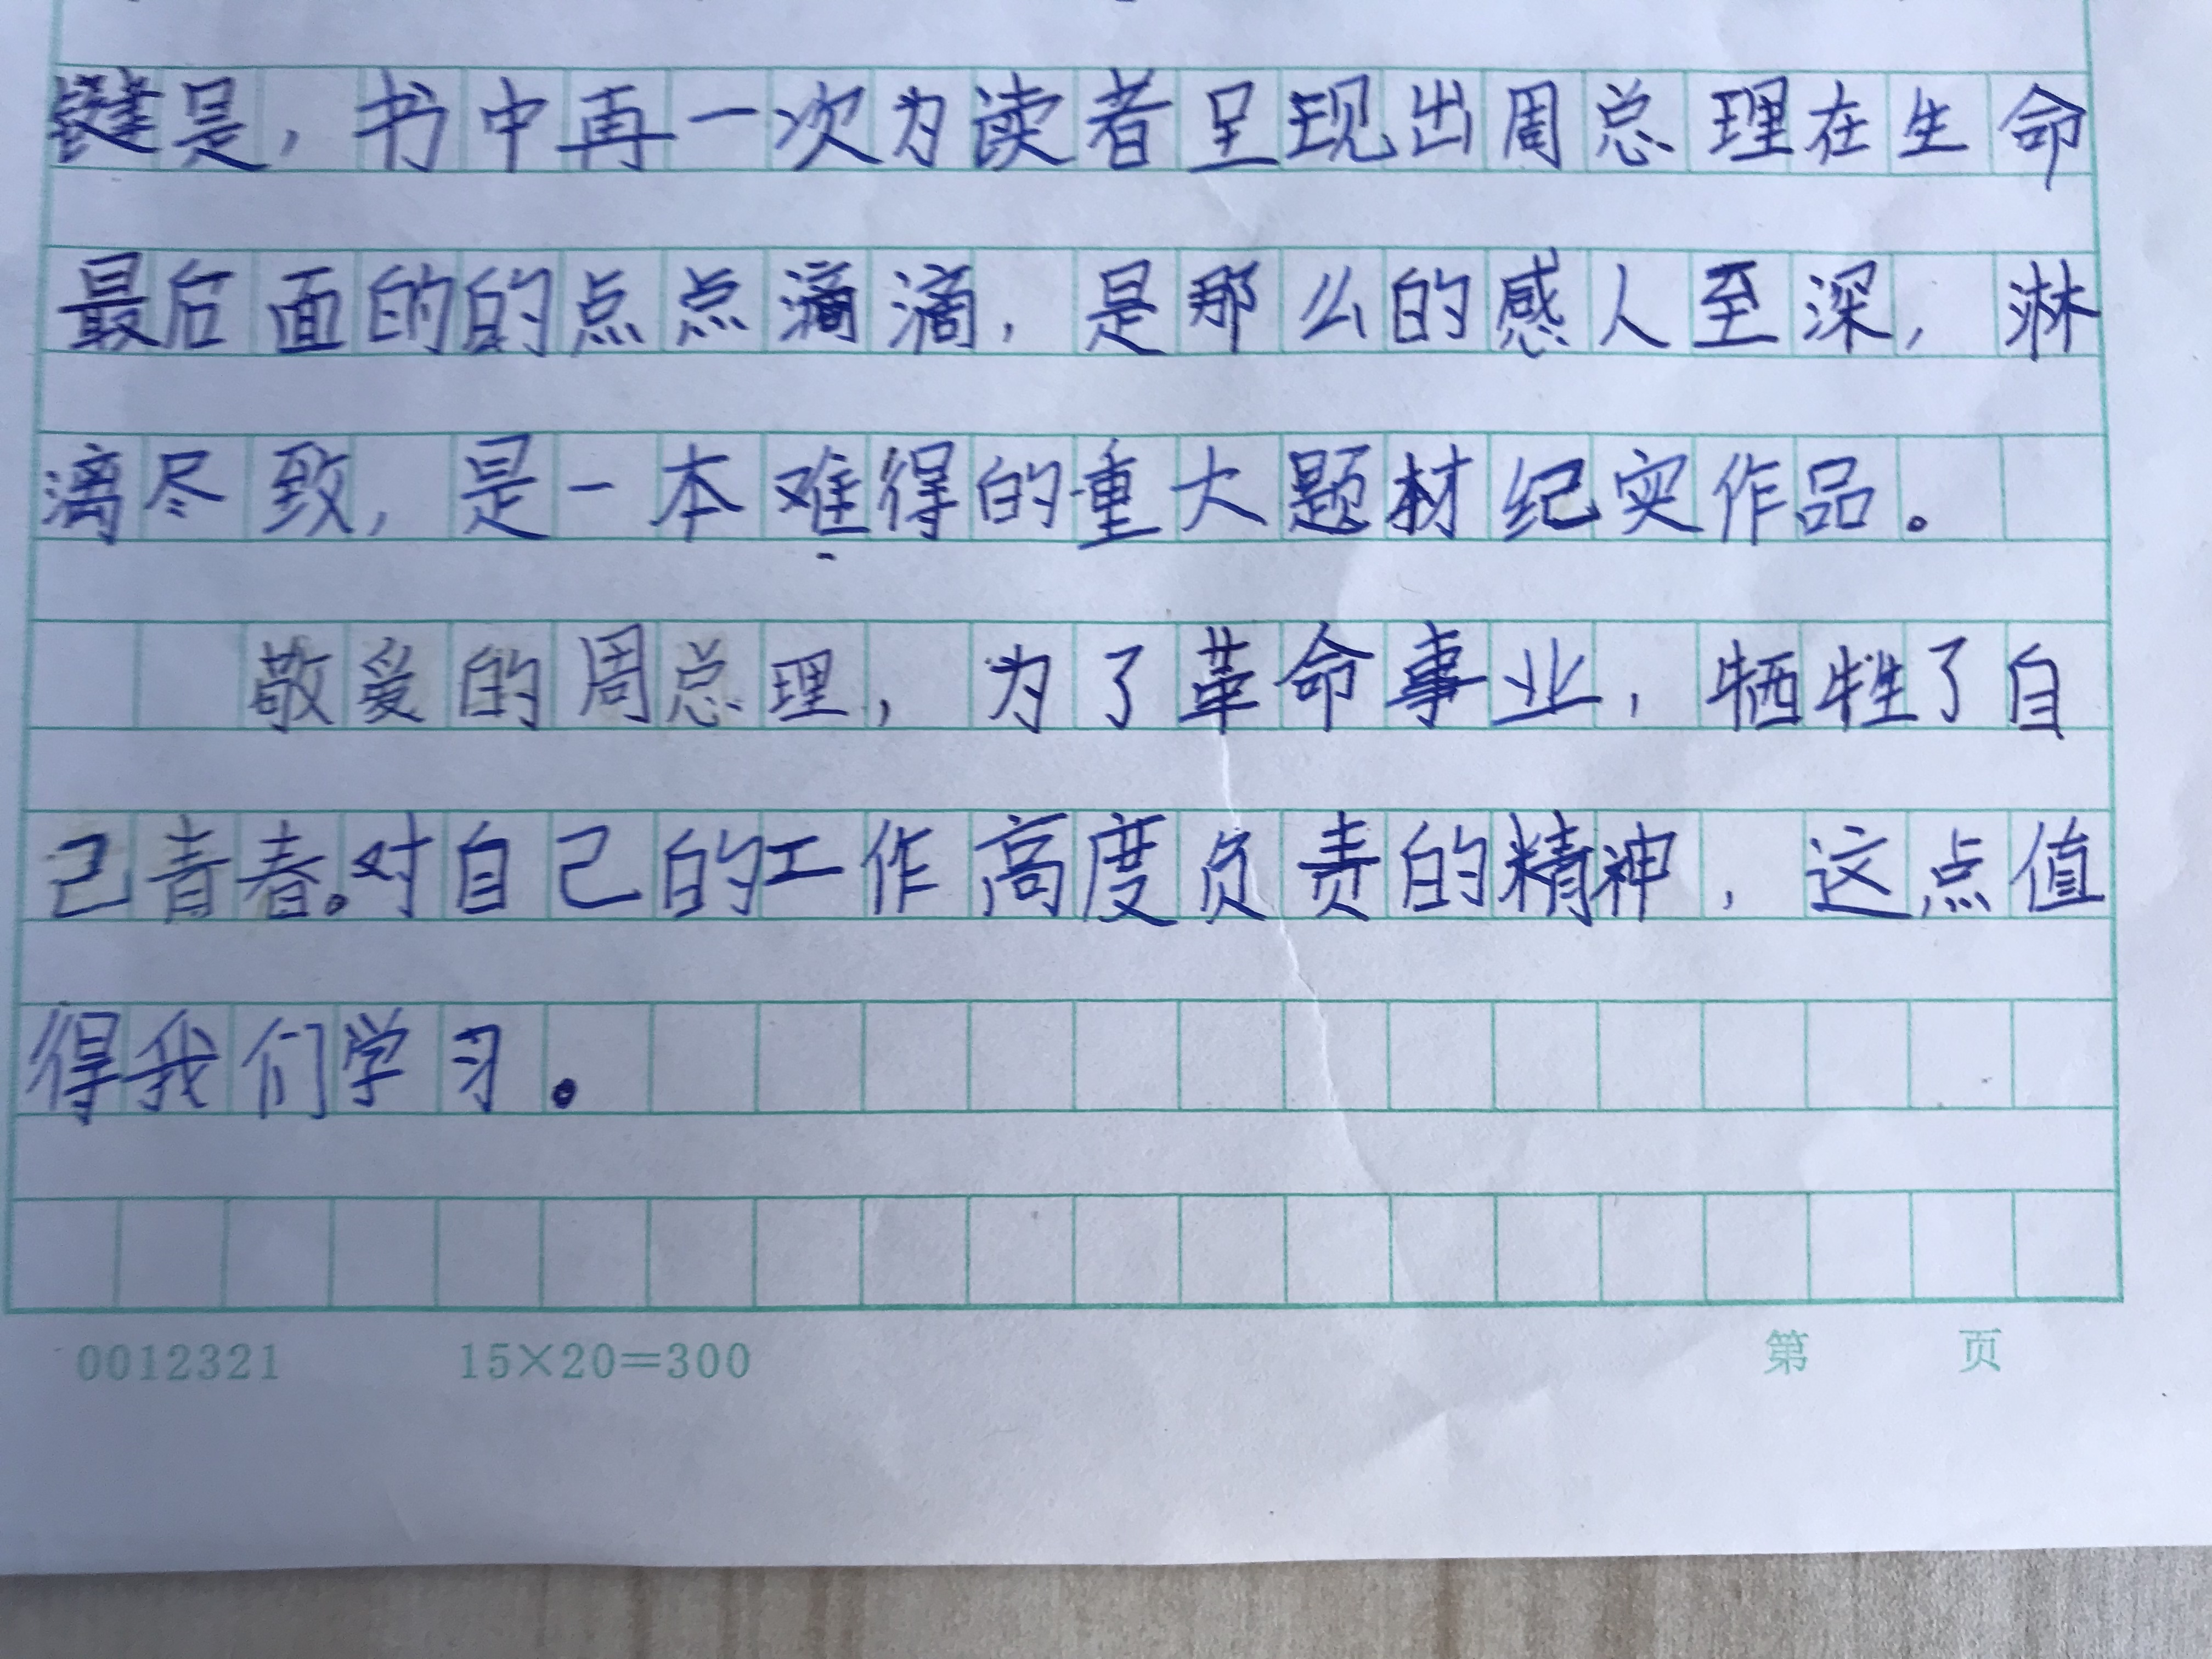 键是，书中再一次为读者呈现出周总理在生命
最后面的的点点滴滴，是那么的感人至深，淋
漓尽致，是一本难得的重大题材纪实作品。
敬爱的周总理，为了革命事业，牺牲了自
己青春。对自己的工作高度负责的精神，这点值
得我们学习。
0012321 15×20=300 第 页